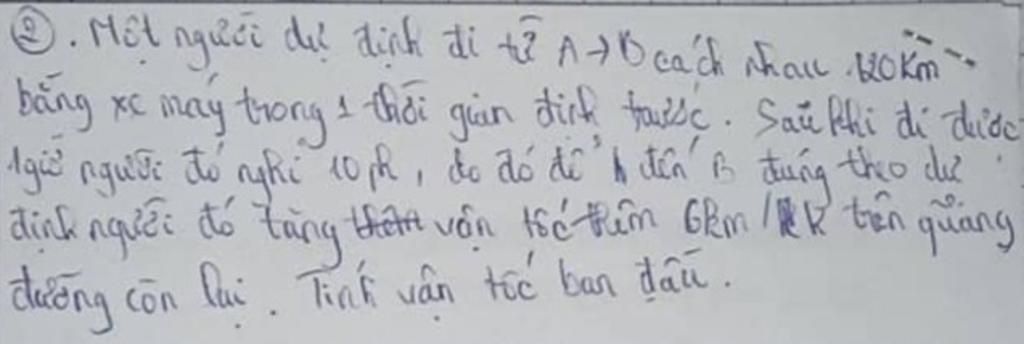 ②. Một người dự định đi từ A → B cách nhau 120Km
bằng xe máy trong 1 thời gian định trước. Sau khi đi được
1 giờ người đó nghỉ 10 ph, do đó để đến B đúng theo dự
định người đó tăng vận tốc thêm 6km/h trên quãng
đường còn lại. Tính vận tốc ban đầu.